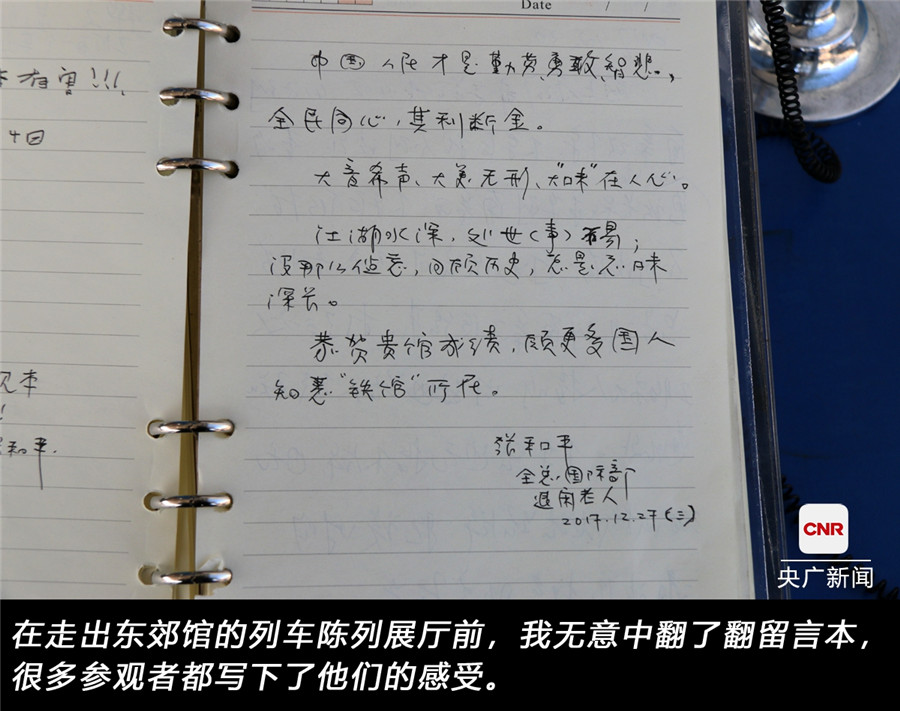 Date / /
有害!!!
4日
本
!
和平.
中国人民才是勤劳、勇敢、智悲。,
全民同心,其利断金。
大音希声、大美无形、"味"在人心。
江湖水深,处世(事)不易;
没那么惬意,回顾历史,总是意味
深长。
恭贺贵馆成绩,愿更多国人
知悉"铁馆"所在。
张和平
全总国际部
退闲老人
2017.12.27(三)
CNR
央广新闻
在走出东郊馆的列车陈列展厅前,我无意中翻了翻留言本,
很多参观者都写下了他们的感受。